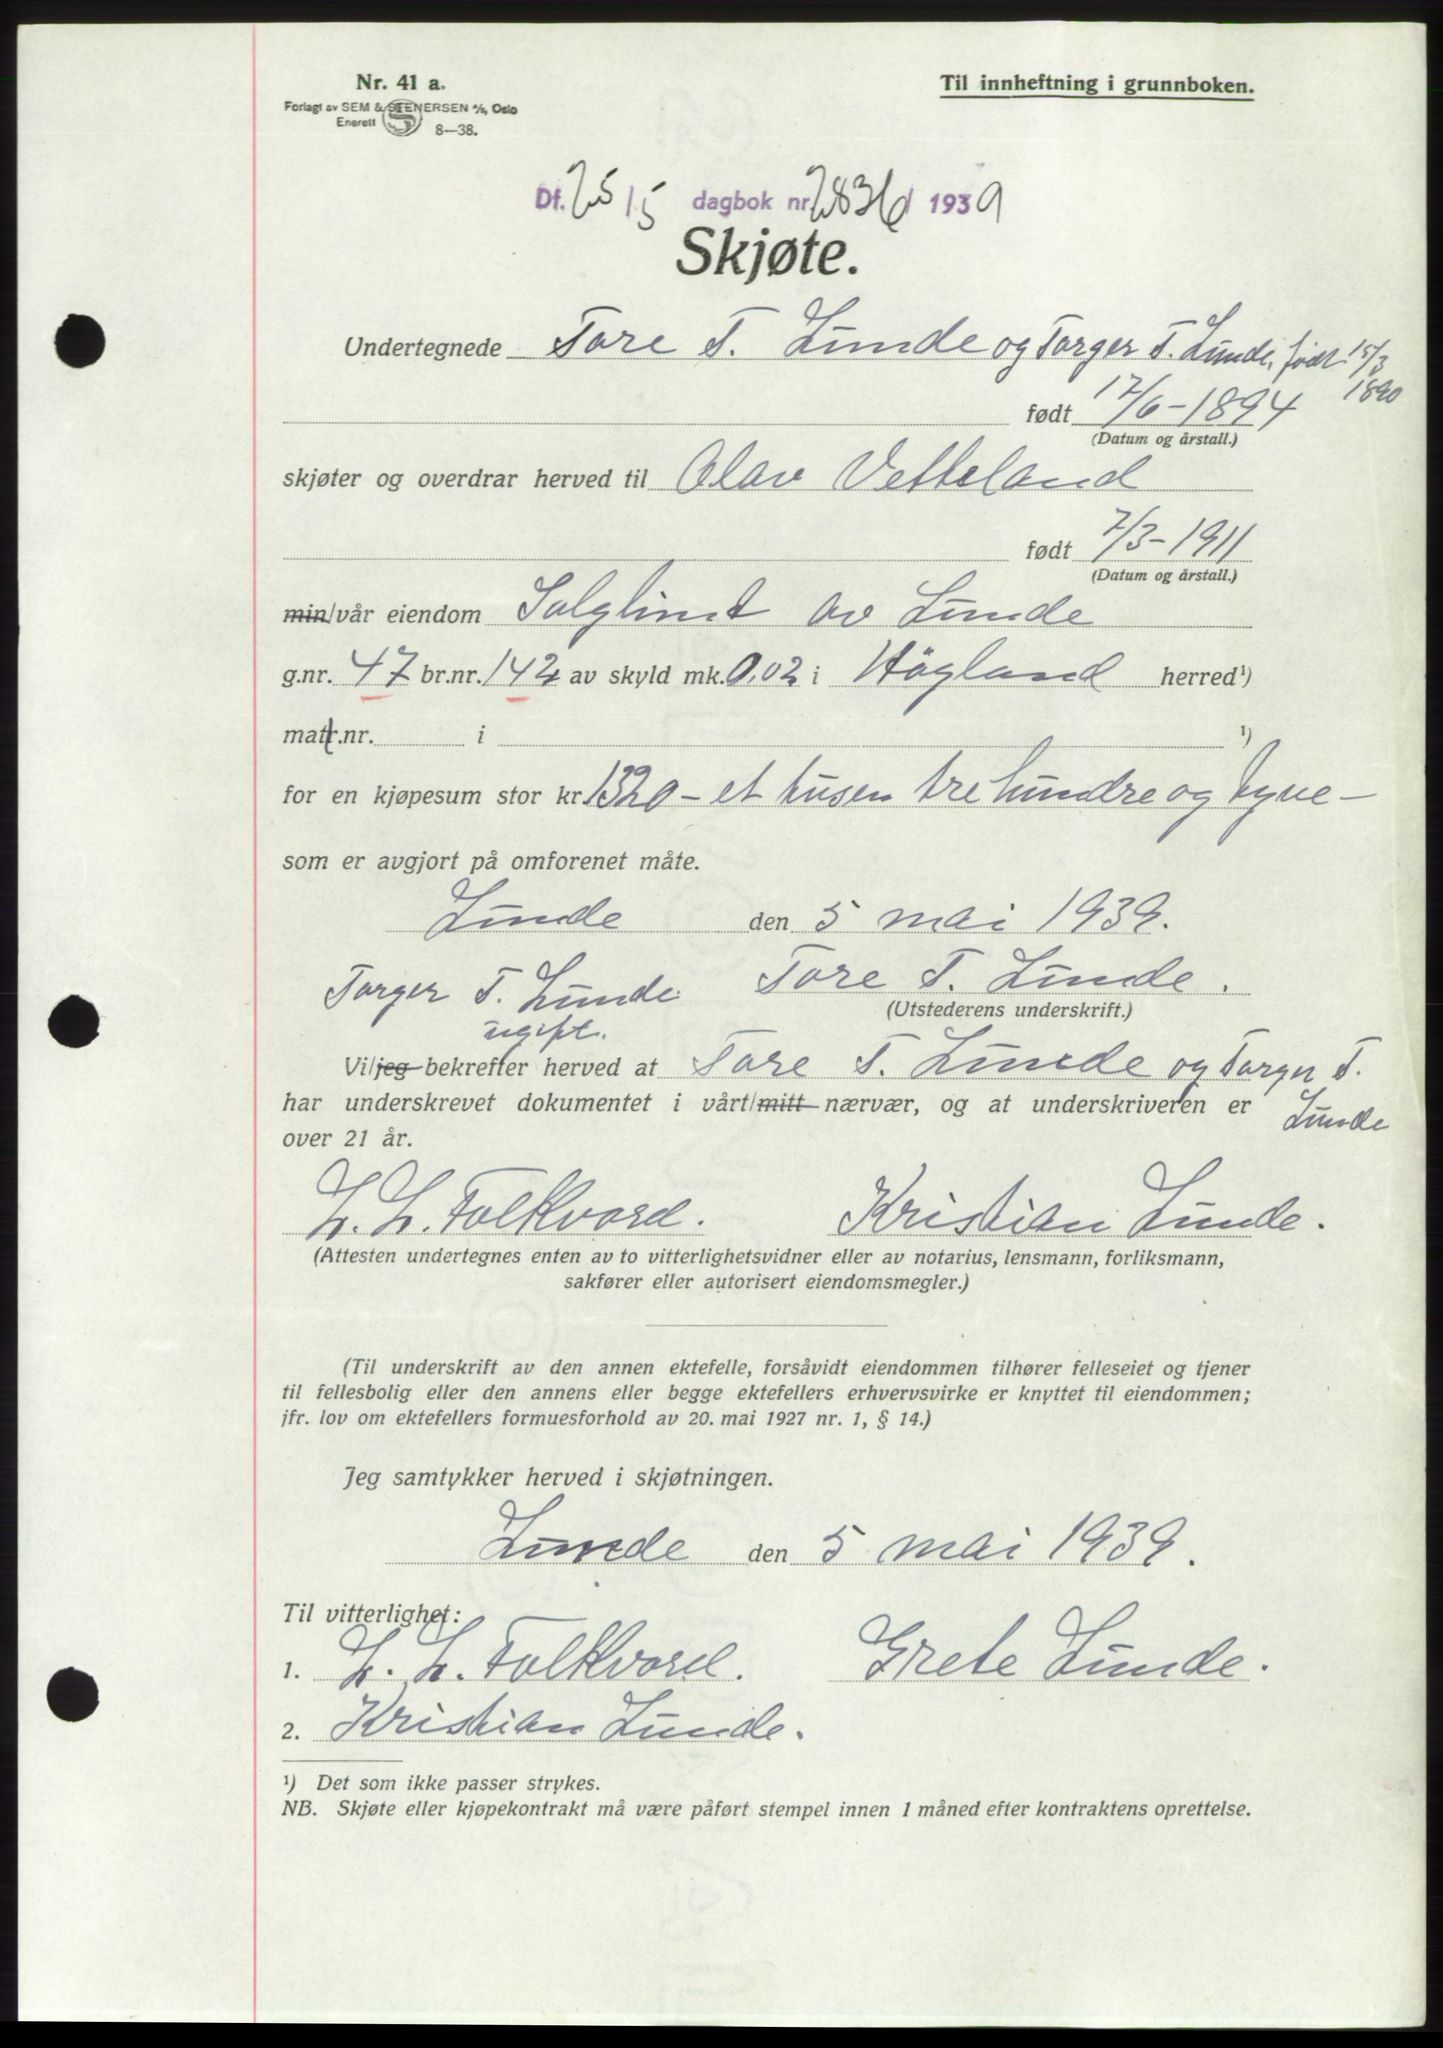 Nr. 41 a.
Til innheftning i grunnboken.
Forlagt av SEM & STENERSEN A/S, Oslo
Enerett
8—38.
Df. 25/5 dagbok nr. 2836/ 1939
Skjøte.
Undertegnede Tore T. Lunde og Torger T. Lunde, født 15/3
1890
født 17/6-1894
(Datum og årstall.)
skjøter og overdrar herved til Olav Vetteland
født 7/3-1911
(Datum og årstall.)
min/vår eiendom Solglimt av Lunde
g.nr. 47 br.nr. 142 av skyld mk. 0,02 i Högland herred¹)
matr.nr. i ¹)
for en kjøpesum stor kr 1320 - et tusen tre hundre og tyve -
som er avgjort på omforenet måte.
Lunde den 5 mai 1939.
Torger T. Lunde Tore T. Lunde.
ugift. (Utstederens underskrift.)
Vi/jeg bekrefter herved at Tore T. Lunde og Torger T.
Lunde
har underskrevet dokumentet i vårt/mitt nærvær, og at underskriveren er
over 21 år.
L. L. Folkvord. Kristian Lunde.
(Attesten undertegnes enten av to vitterlighetsvidner eller av notarius, lensmann, forliksmann,
sakfører eller autorisert eiendomsmegler.)
(Til underskrift av den annen ektefelle, forsåvidt eiendommen tilhører felleseiet og tjener
til fellesbolig eller den annens eller begge ektefellers erhvervsvirke er knyttet til eiendommen;
jfr. lov om ektefellers formuesforhold av 20. mai 1927 nr. 1, § 14.)
Jeg samtykker herved i skjøtningen.
Lunde den 5 mai 1939.
Til vitterlighet:
1. L. L. Folkvord. Grete Lunde.
2. Kristian Lunde.
¹) Det som ikke passer strykes.
NB. Skjøte eller kjøpekontrakt må være påført stempel innen 1 måned efter kontraktens oprettelse.